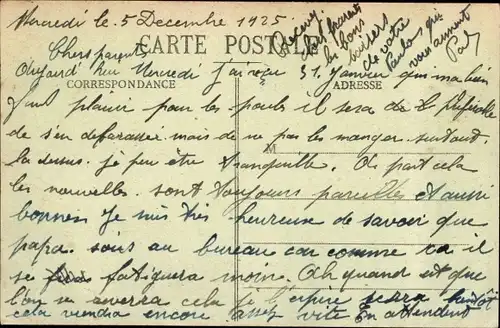 Mercredi le 5 Decembre 1925
Recevez
chers parents
les bons
baisers
de votre
Paula qui
vous aiment
CARTE POSTALE
Chers parents
Aujourd'hui Mercredi j'ai reçu 31 Janvier qui m'a bien
CORRESPONDANCE
ADRESSE
plaisir pour les poules il sera de préférable
de s'en debarasser mais de ne pas les manger surtout
M
la dessus je peu être tranquille. A part cela
les nouvelles sont toujours pareilles et aussi
bonnes je suis très heureuse de savoir que
papa sois au bureau car comme ca il
se fatiguera moin. Ah quand est que
l'on se verra cela je l'espire sera bientôt
cela viendra encore assez vite en attendent